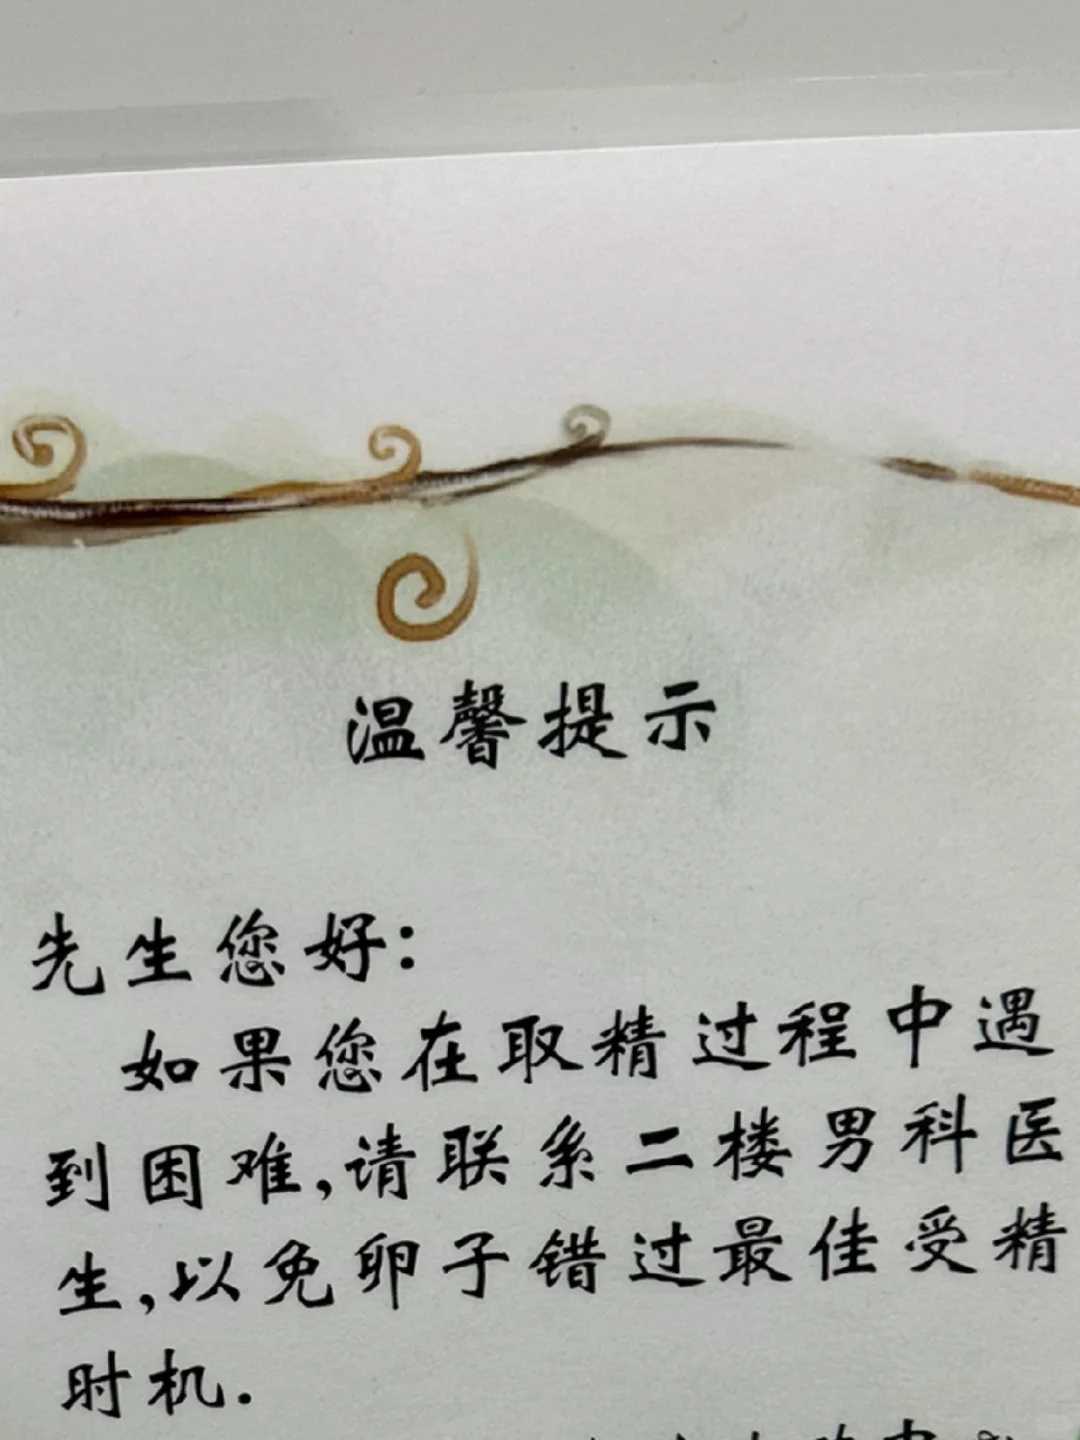 温馨提示
先生您好:
如果您在取精过程中遇
到困难,请联系二楼男科医
生,以免卵子错过最佳受精
时机.